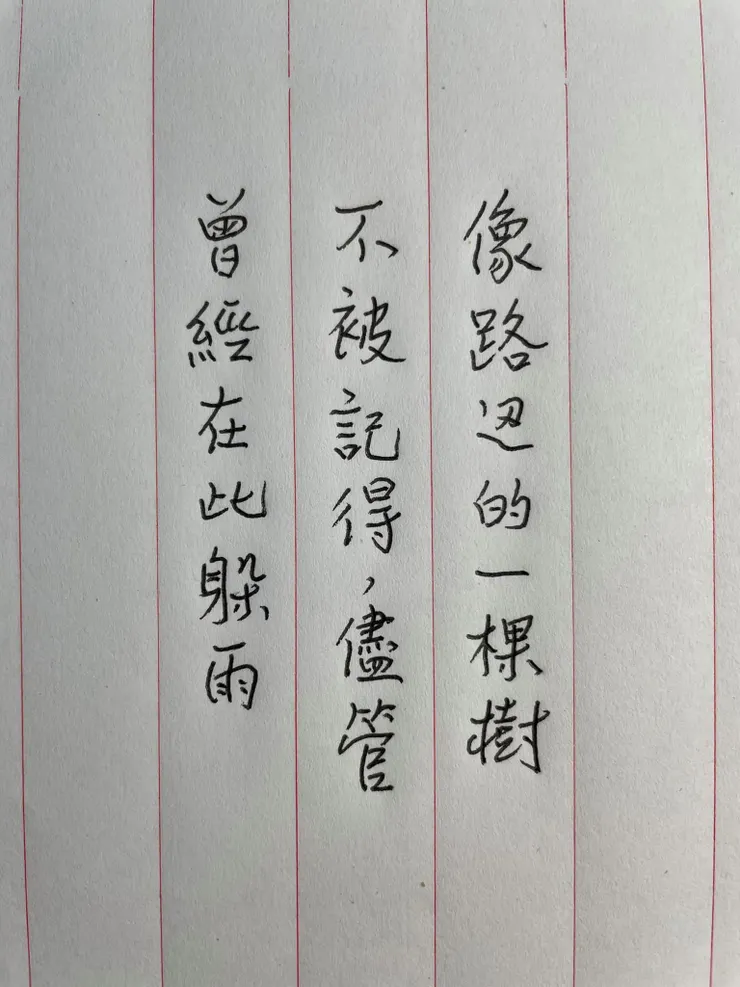 像路過的一棵樹
不被記得，儘管
曾經在此躲雨